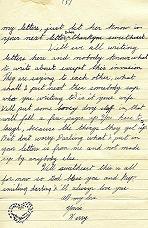 my letters, just let her know in
your next letter, thankyou sweetheart.
Well we all writing
letters here and nobody knows what
to write about except this invasion
They are saying to each other, what
shall I put next then somebody says
who you writing to is it your wife.
Well put some long in that
will fill a few pages up. You have to
laugh, because the things they get up
But dont worry Darling what I put in
your letter is from me and not made
up by anybody else.
Well sweetheart this is all
for now so God bless you and keep
smiling darling I'll always love you.
All my love
Yours
Harry